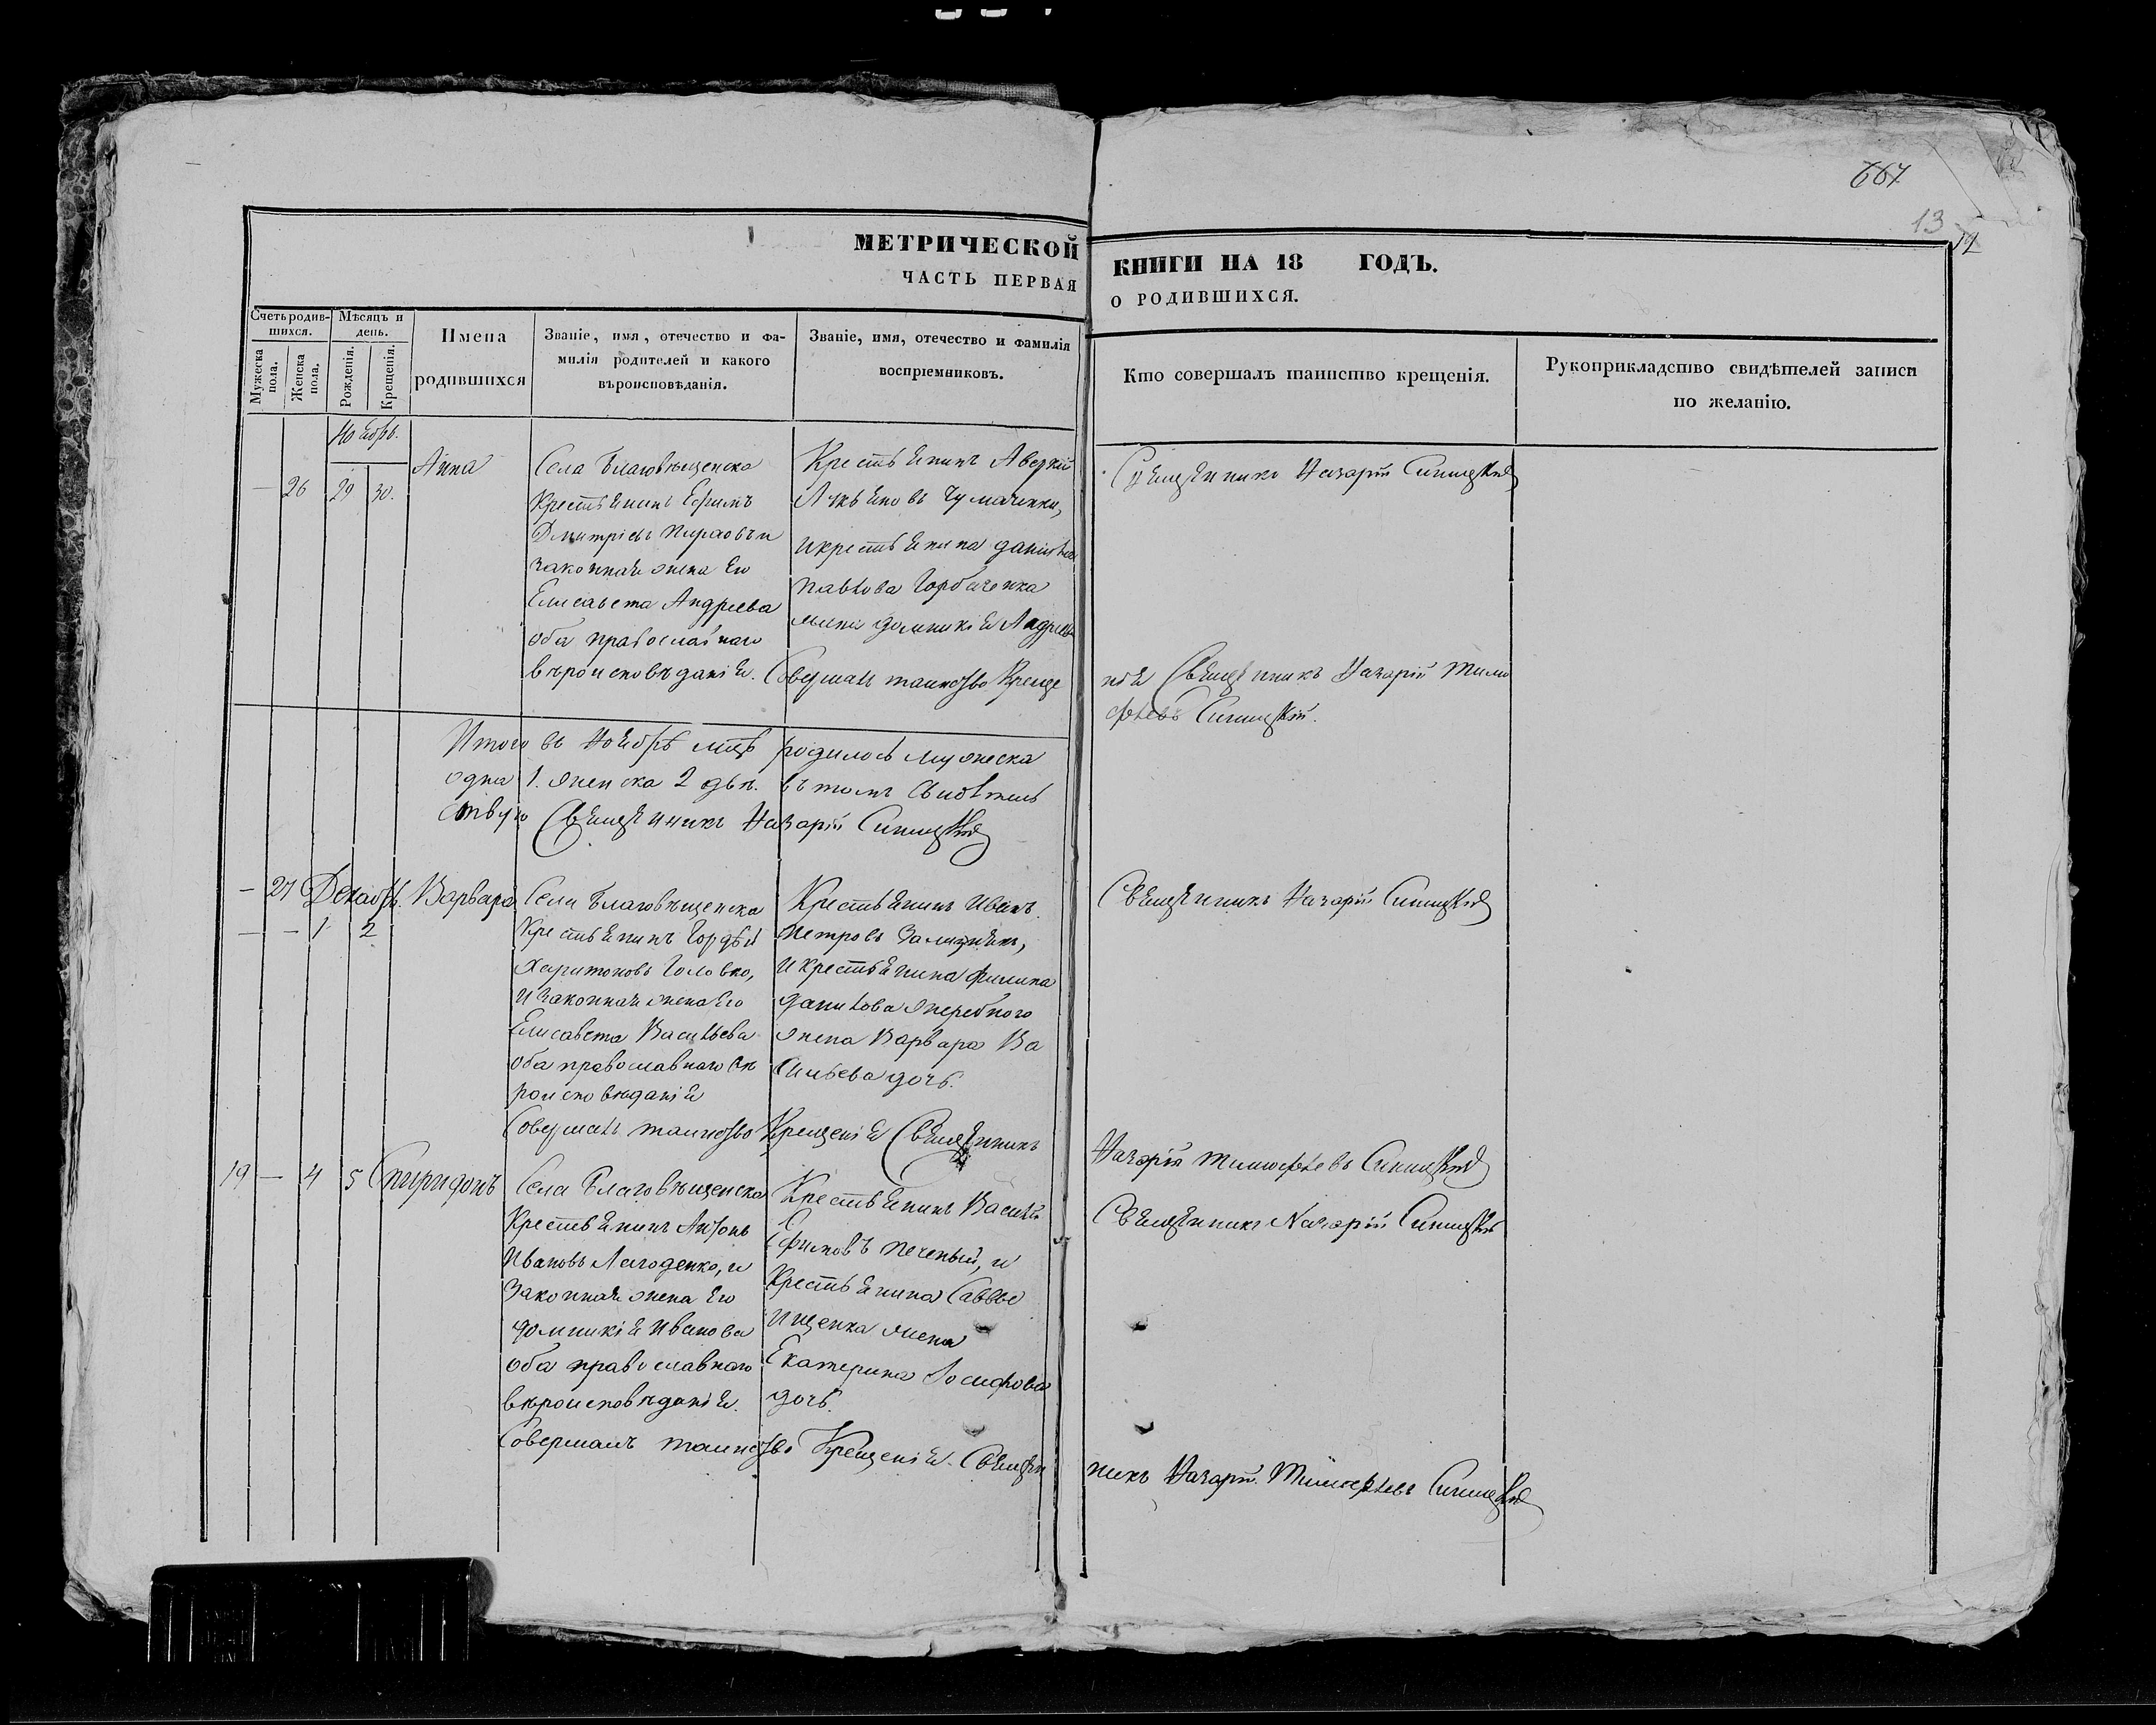 667
13
МЕТРИЧЕСКОЙ КНИГИ НА 18 ГОДЪ.
ЧАСТЬ ПЕРВАЯ О РОДИВШИХСЯ.
Счетъ родив-
шихся.
Мѣсяцъ и
день.
Мужеска
пола.
Женска
пола.
Рожденія.
Крещенія.
Имена
родившихся
Званіе, имя, отечество и фа-
милія родителей и какого
вѣроисповѣданія.
Званіе, имя, отечество и фамилія
воспріемниковъ.
Кто совершалъ таинство крещенія.
Рукоприкладство свидѣтелей записи
по желанію.
Ноябрь.
— 26 29 30.
Анна
Села Благовѣщенска
Крестьянинъ Ефимъ
Дмитріевъ и
законная жена Его
Елисавета Андреева
оба православнаго
вѣроисповѣданія.
Крестьянинъ Аверкій
Лукьяновъ Чумаченки,
и крестьянина
Павлова Горбаченка
Домникія
Священникъ Назарій Синицкій
Совершалъ таинство Креще
нія Священникъ Назарій Тимо
феевъ Синицкій.
Итого въ Ноябрѣ мцѣ родилось мужеска
одна 1. женска 2 двѣ. въ томъ свидѣтель
ствую Священникъ Назарій Синицкій
— 27 Декабрь. Варвара
— — 1 2
Села Благовѣщенска
Крестьянинъ Гордѣй
Харитоновъ Головко,
и законная жена Его
Елисавета Васильева
оба православнаго вѣ
роисповѣданія
Крестьянинъ Иванъ
Петровъ Зализнякъ,
и крестьянина Филипа
Данилова Жеребного
жена Варвара Ва
сильева дочь.
Священникъ Назарій Синицкій
Совершалъ таинство Крещенія Священникъ
Назарій Тимофеевъ Синицкій
19 — 4 5 Спиридонъ
Села Благовѣщенска
Крестьянинъ Антонъ
Ивановъ Лагоденко, и
Законная жена Его
Домникія Иванова
оба православнаго
вѣроисповѣданія.
Крестьянинъ Василій
Ефимовъ Печеный, и
Крестьянина Саввы
Ищенка жена
Екатерина Іосифова
дочь.
Священникъ Назарій Синицкій
Совершалъ таинство Крещенія Священ
никъ Назарій Тимофеевъ Синицкій